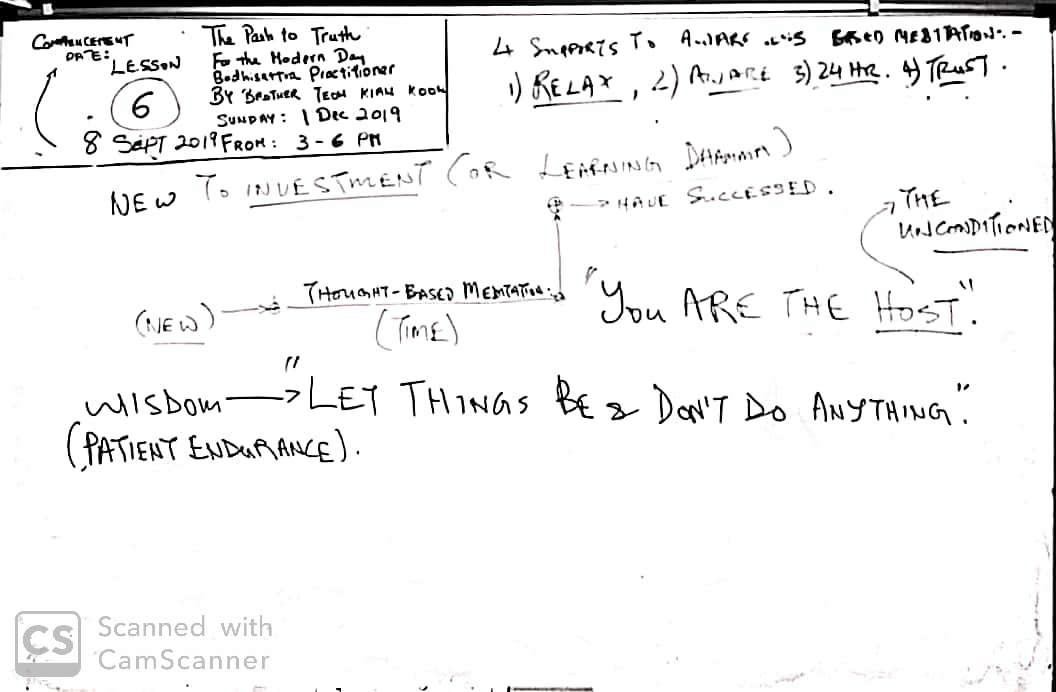 COMMENCEMENT
DATE:
LESSON
6
8 SEPT 2019
The Path to Truth
For the Modern Day
Bodhisattva Practitioner
BY BROTHER TEOH KIAN KOON
SUNDAY: 1 Dec 2019
FROM: 3 - 6 PM
4 SUPPORTS TO AWARENESS BASED MEDITATION:-
1) RELAX, 2) AWARE 3) 24 HR. 4) TRUST.
NEW TO INVESTMENT (OR LEARNING DHAMMA)
→ HAVE SUCCESSED.
THE
UNCONDITIONED
(NEW) → THOUGHT-BASED MEDITATION:
(TIME)
"YOU ARE THE HOST".
WISDOM → "LET THINGS BE & DON'T DO ANYTHING".
(PATIENT ENDURANCE).
CS Scanned with
CamScanner